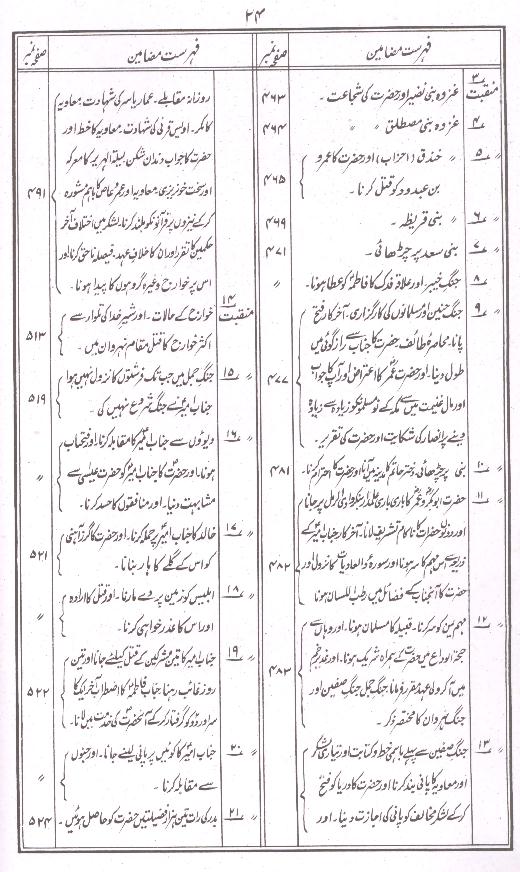 ۲۴
فہرست مضامین
صفحہ نمبر
منقبت ۳
غزوہ بنی نضیر اور حضرت کی شجاعت ۔ ۴۶۳
〃 ۴ غزوہ بنی مصطلق 〃 〃 ۴۶۴
〃 ۵ 〃 خندق (احزاب) اور حضرت کا عمرو
بن عبدود کو قتل کرنا ۔ ۴۶۵
〃 ۶ 〃 بنی قریظہ ۔ ۴۶۹
〃 ۷ بنی سعد پر چڑھائی ۔ ۴۷۱
〃 ۸ جنگ خیبر اور علاقہ فدک کا فاطمہؑ کو عطا ہونا ۔ 〃
〃 ۹ جنگ حنین و مسلمانوں کی کارگزاری ۔ آخر کار فتح
پانا ۔ محاصرہ طائف حضرت کا جناب سے رازگوئی میں
طول دینا ۔ اور حضرت عمرؓ کا اعتراض اور آپ کا جواب
اور مال غنیمت میں سے مکہ کے نو مسلموں کو زیادہ سے زیادہ
دینے پر انصار کی شکایت اور حضرت کی تقریر ۔ ۴۷۷
〃 ۱۰ بنی پر چڑھائی دختر حاتم کا مدینہ میں آنا اور حضرت کا احترام کرنا ۔ ۴۸۱
〃 ۱۱ حضرت ابوبکرؓ و عمرؓ کا باری باری علمدار لشکر وادی الرمل پر جانا
اور دونوں حضرت کا ناکام تشریف لانا ۔ آخر کار جناب امیرؑ کے
ذریعے اس مہم کا سر ہونا اور سورہ والعادیات کا نزول اور
حضرت کا آنجناب کے فضائل میں رطب اللسان ہونا ۴۸۲
〃 ۱۲ مہم یمن کو سر کرنا ۔ قبیلہ کا مسلمان ہونا ۔ اور وہاں سے
حجۃ الوداع میں حضرت کے ہمراہ شریک ہونا ۔ اور غدیر خم
میں آکر ولی عہد مقرر فرمانا ۔ جنگ جمل جنگ صفین اور
جنگ نہروان کا مختصر ذکر ۔ ۴۸۳
〃 ۱۳ جنگ صفین سے پہلے باہمی خط و کتابت اور تیاری لشکر
اور معاویہ کا پانی بند کرنا اور حضرت کا دریا کو فتح
کر کے لشکر مخالف کو پانی کی اجازت دینا ۔ اور
فہرست مضامین
صفحہ نمبر
روزانہ مقابلے ۔ عمار یاسر کی شہادت ۔ معاویہ
کا مکر ۔ اویس قرنی کی شہادت ۔ معاویہ کا خط اور
حضرت کا جواب دندان شکن ۔ لیلۃ الہریر کا معرکہ
اور سخت خونریزی ۔ معاویہ اور عمر عاص کا باہم مشورہ
کر کے نیزوں پر قرآنوں کو بلند کرنا ۔ لشکر میں اختلاف آخر
حکمین کا تقرر اور ان کا خلاف عہد ۔ فیصلہ ناحق کرنا اور
اس پر خوارج وغیرہ گروہوں کا پیدا ہونا ۔ ۴۹۱
منقبت ۱۴
خوارج کے حالات ۔ اور شیر خدا کی تلوار سے
اکثر خوارج کا قتل مقام نہروان میں ۔ ۵۱۳
〃 ۱۵ جنگ جمل میں جب تک فرشتوں کا نزول نہیں ہوا
جناب امیرؑ نے جنگ شروع نہیں کی ۔ ۵۱۹
〃 ۱۶ دیووں سے جناب امیرؑ کا مقابلہ کرنا ۔ اور فتحیاب
ہونا ۔ اور حضرتؐ کا جناب امیرؑ کو حضرت عیسیٰ سے
مشابہت دینا ۔ اور منافقوں کا حسد کرنا ۔ 〃
〃 ۱۷ خالد کا جناب امیرؑ پر حملہ کرنا ۔ اور حضرت کا گرز آہنی
کو اس کے گلے کا ہار بنانا ۔ ۵۲۱
〃 ۱۸ ابلیس کو زمین پر دے مارنا ۔ اور قتل کا ارادہ
اور اس کا عذر خواہی کرنا ۔ 〃
〃 ۱۹ جناب امیرؑ کا تین مشرکین کے قتل کیلئے جانا اور تین
روز غائب رہنا ۔ جناب فاطمہؑ کا اضطراب آخر ایک کا
سر اور دو کو گرفتار کر کے آنحضرتؐ کی خدمت میں لانا ۔ ۵۲۲
〃 ۲۰ جناب امیرؑ کا کوئیں پر پانی لینے جانا ۔ اور جنوں
سے مقابلہ کرنا ۔ 〃
〃 ۲۱ بدر کی رات تین ہزار فضیلتیں حضرت کو حاصل ہوئیں ۔ ۵۲۴